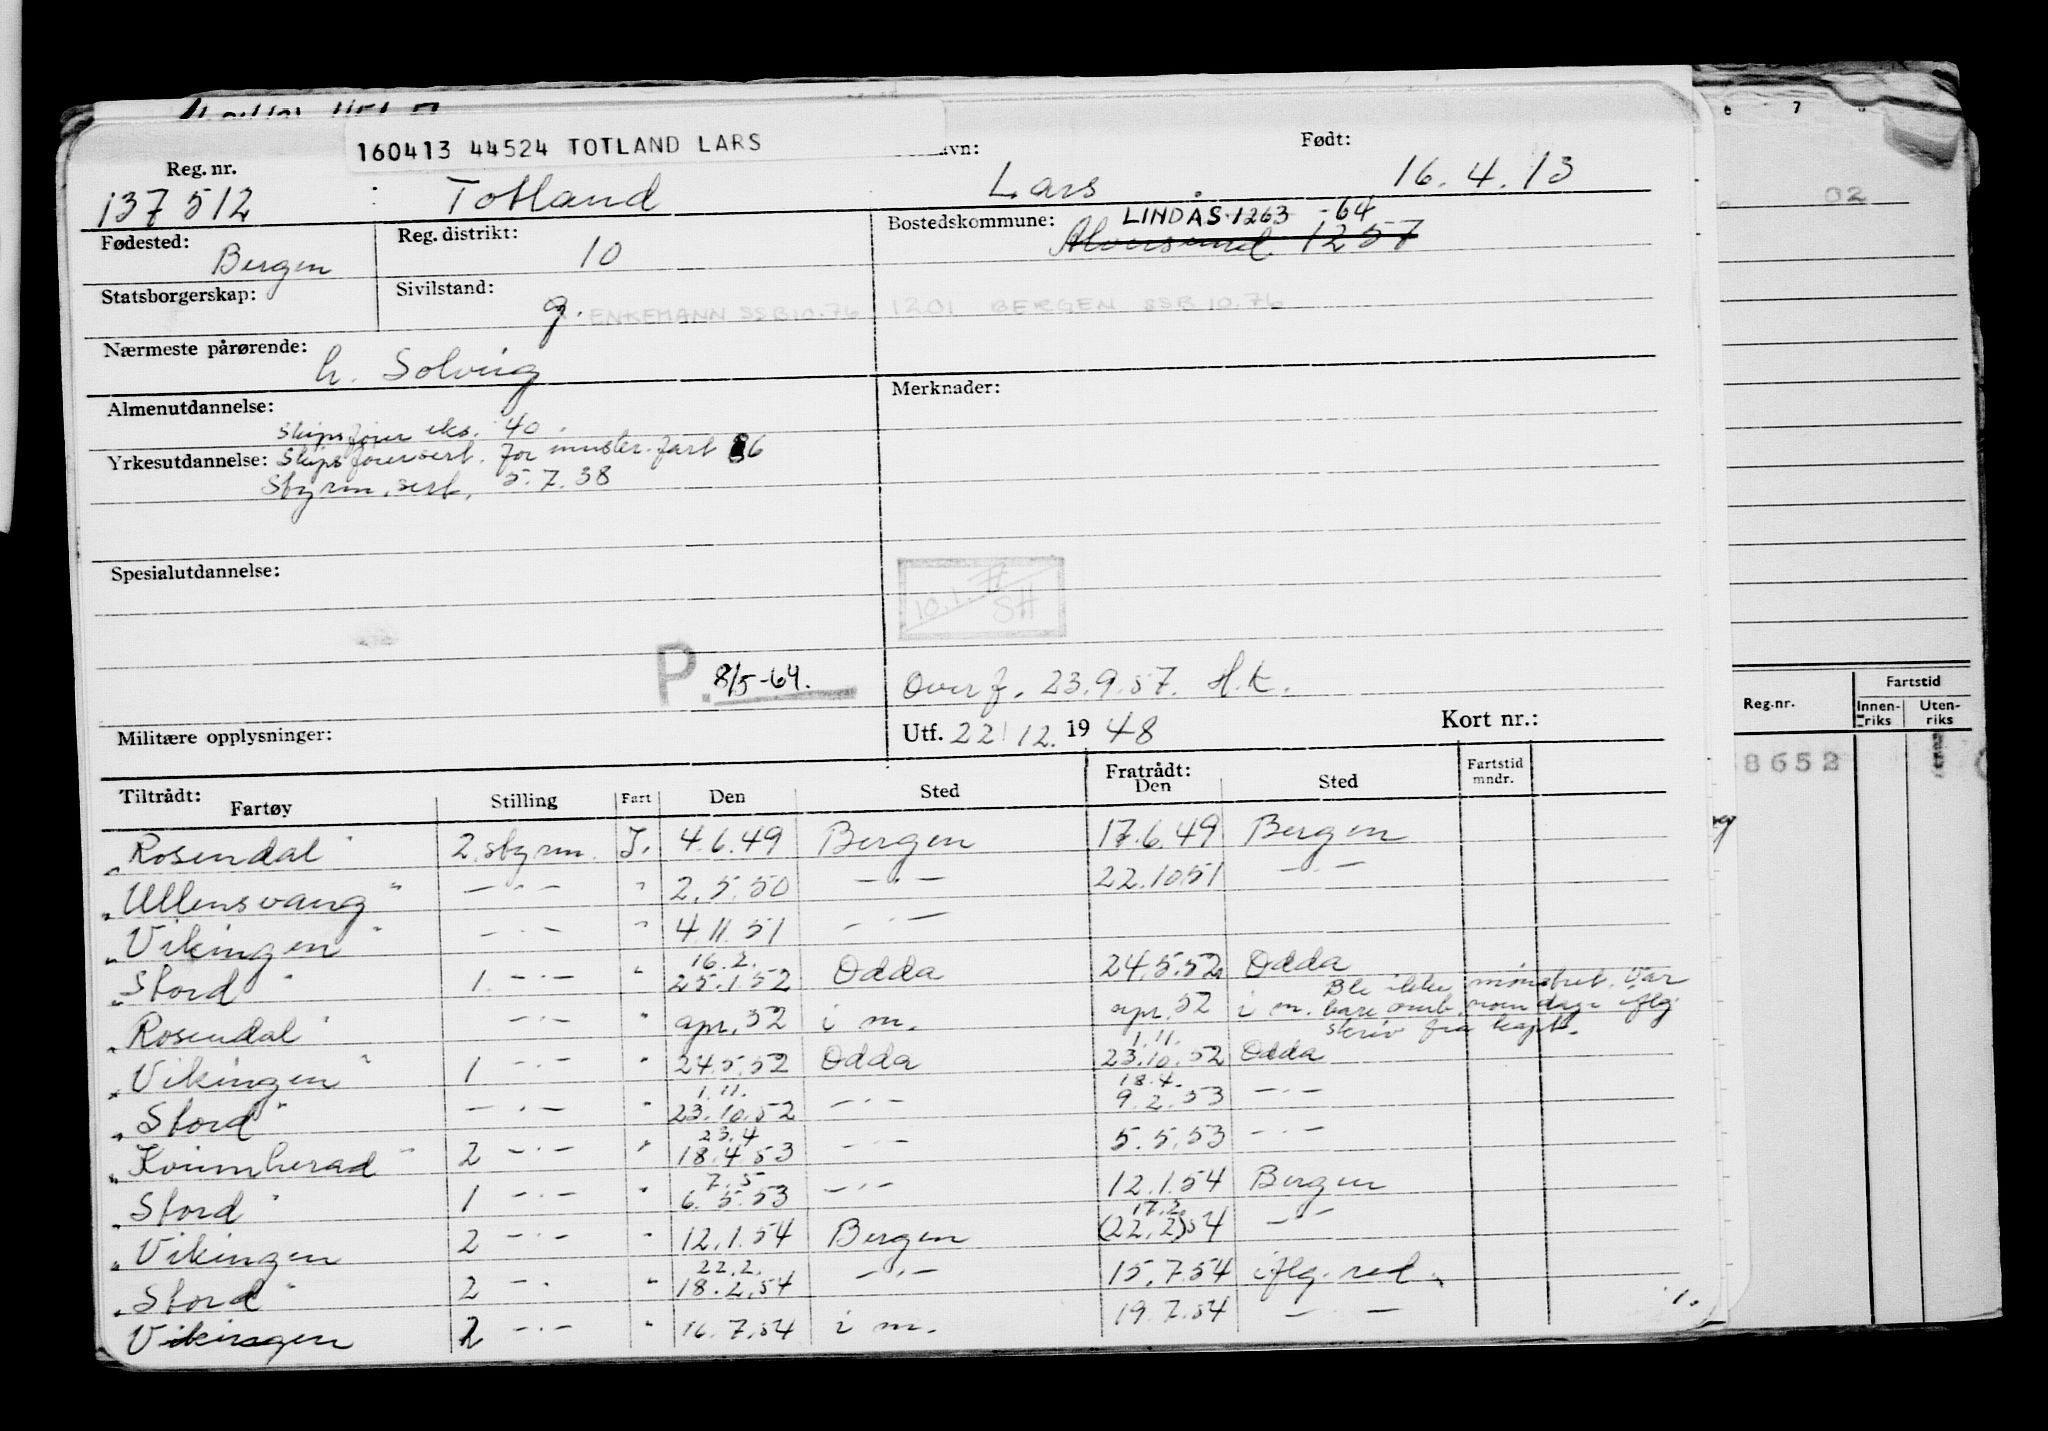 160413 44524 TOTLAND LARS
Reg. nr. avn: Født:
137 512 Totland Lars 16. 4. 13
Fødested: Bergen Reg. distrikt: 10 Bostedskommune: LINDÅS 1263 -64
Alversund 1257
Statsborgerskap: Sivilstand: g. ENKEMANN SSB 10.76 1201 BERGEN SSB 10.76
Nærmeste pårørende: h. Solveig
Almenutdannelse: Merknader:
Skipsfører eks. 40
Yrkesutdannelse: Skipsførersert. for innskr. fart 86
Styrm. sert. 5.7.38
Spesialutdannelse:
10.1. SH
P. 8/5-64. Overf. 23.9.57. H.K.
Militære opplysninger: Utf. 22/12. 1948 Kort nr.:
Tiltrådt: Fratrådt: Fartstid
Fartøy Stilling Fart Den Sted Den Sted mndr.
"Rosendal" 2. styrm. I. 4.6.49 Bergen 17.6.49 Bergen
"Ullensvang" —·— " 2.5.50 —·— 22.10.51 —·—
"Vikingen" —·— " 4.11.51 —·—
16.2.
"Stord" 1. —·— " 25.1.52 Odda 24.5.52 Odda
"Rosendal" —·— " apr. 52 i m. apr. 52 i m. Ble ikke mønstret. Var
bare omb. noen dager iflg.
skriv fra kapt.
1.11.
"Vikingen" 1 —·— " 24.5.52 Odda 23.10.52 Odda
1.11. 18.4.
"Stord" —·— " 23.10.52 —·— 9.2.53 —·—
23.4
"Kvinnherad" 2 —·— " 18.4.53 —·— 5.5.53 —·—
7.5
"Stord" 1 —·— " 6.5.53 —·— 12.1.54 Bergen
17.2.
"Vikingen 2 —·— " 12.1.54 Bergen (22.2)54 —·—
22.2.
"Stord" 2 —·— " 18.2.54 —·— 15.7.54 iflg. red.
Vikingen 2 —·— " 16.7.54 i m. 19.7.54 —·—
6 7 8
02
Reg.nr. Fartstid
Innen-
riks Uten-
riks
8652